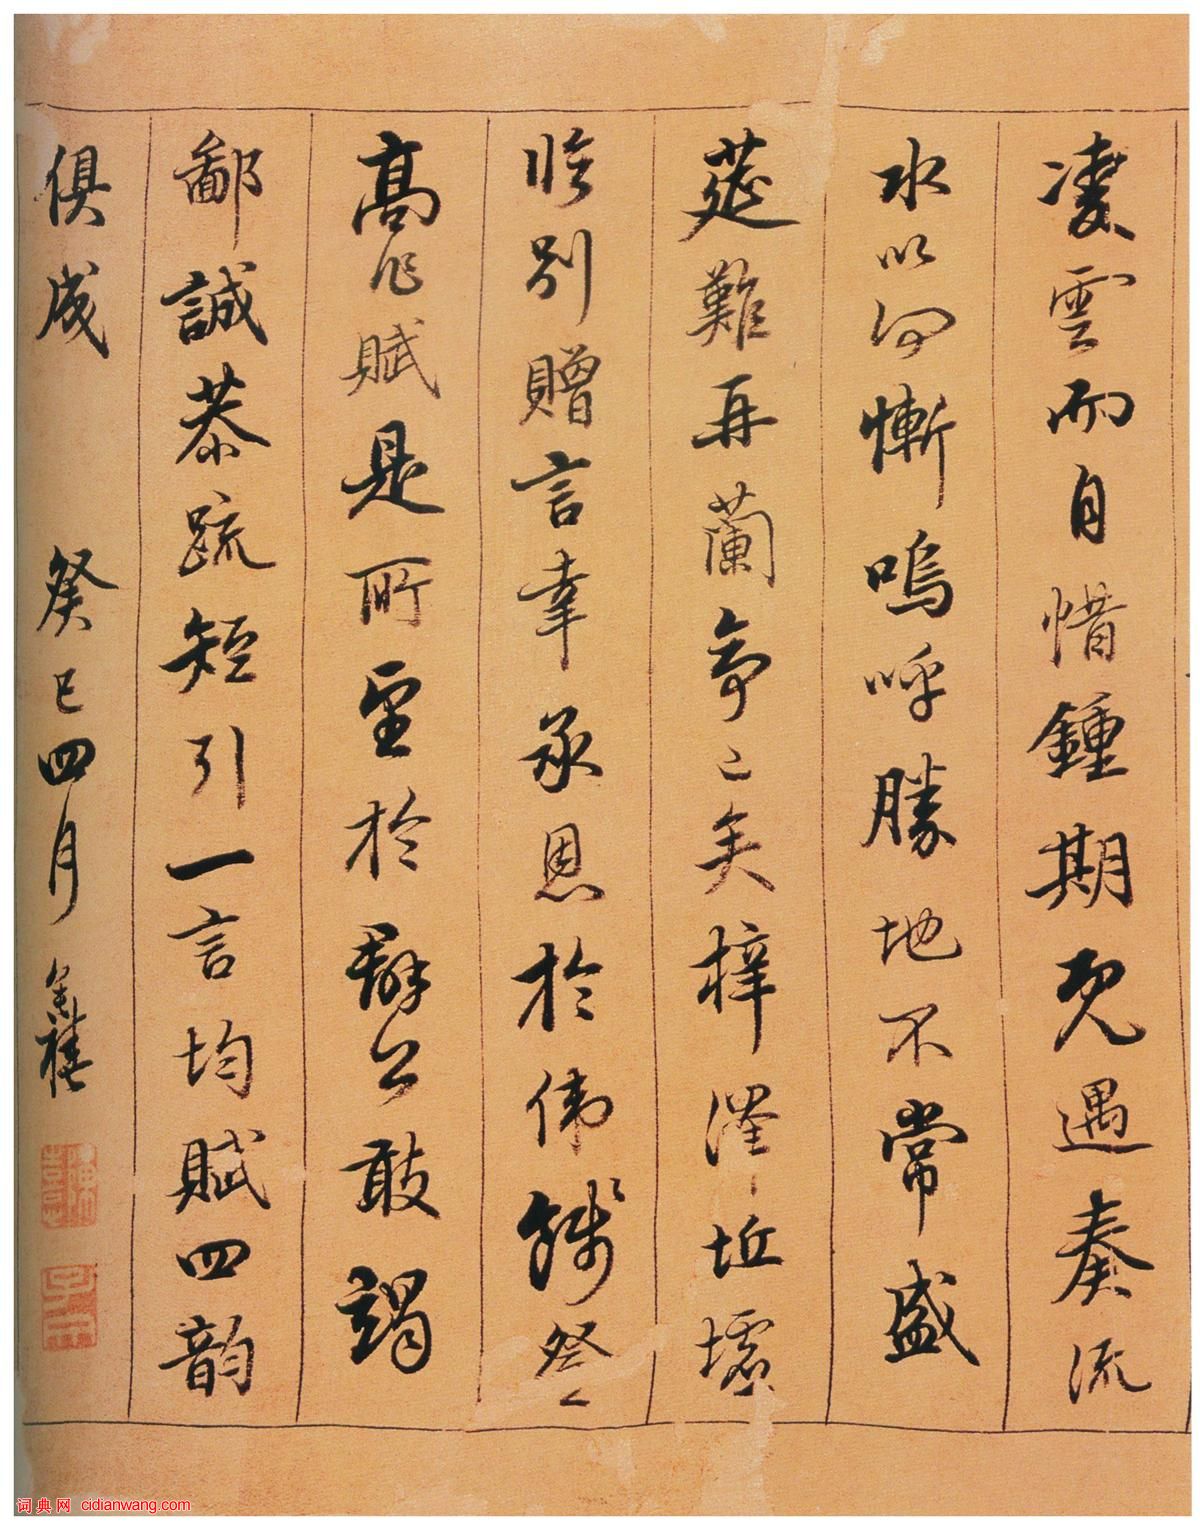 凌雲而自惜鍾期既遇奏流
水以何慚嗚呼勝地不常盛
莚難再蘭亭已矣梓澤坵墟
臨別贈言幸承恩於偉餞登
高作賦是所望於群公敢竭
鄙誠恭疏短引一言均賦四韻
俱成 癸巳四月 奕禧
词典网 cidianwang.com